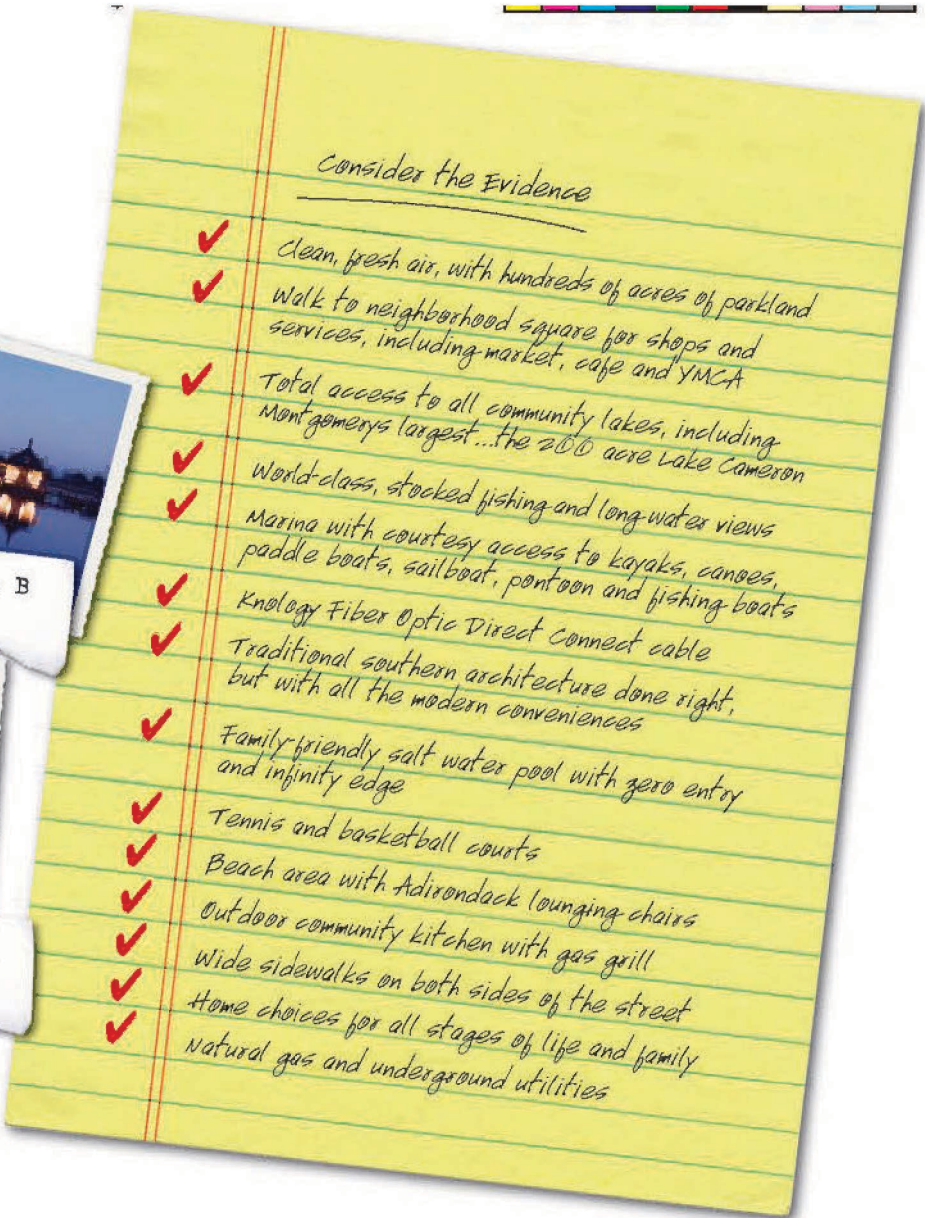 Consider the Evidence
Clean, fresh air, with hundreds of acres of parkland
Walk to neighborhood square for shops and
services, including market, cafe and YMCA
Total access to all community lakes, including
Montgomerys largest...the 200 acre Lake Cameron
World-class, stocked fishing and long-water views
Marina with courtesy access to kayaks, canoes,
paddle boats, sailboat, pontoon and fishing boats
Knology Fiber Optic Direct Connect cable
Traditional southern architecture done right,
but with all the modern conveniences
Family-friendly salt water pool with zero entry
and infinity edge
Tennis and basketball courts
Beach area with Adirondack lounging chairs
Outdoor community kitchen with gas grill
Wide sidewalks on both sides of the street
Home choices for all stages of life and family
Natural gas and underground utilities
B